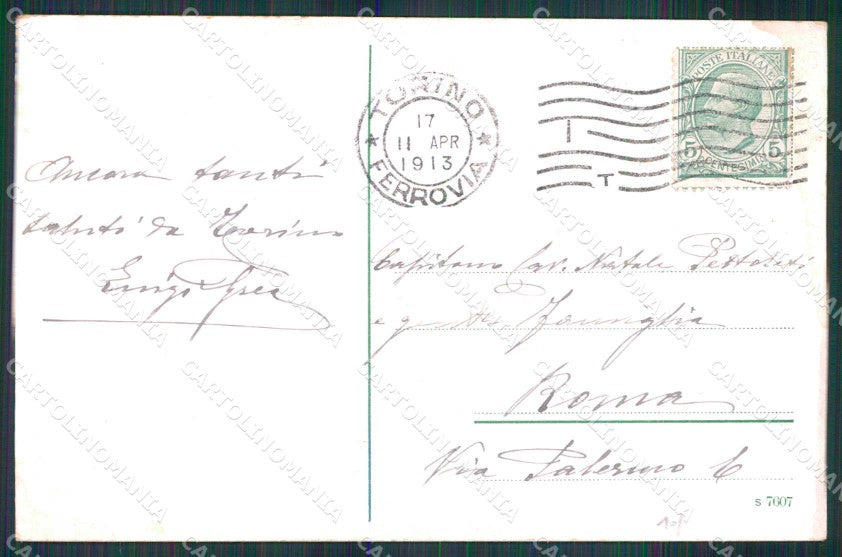 Ancora tanti
saluti da Torino
Luigi
TORINO
17
11 APR
1913
FERROVIA
I
T
POSTE ITALIANE
5 CENTESIMI 5
Capitano Cav. Natale
e Famiglia
Roma
Via Palermo 6
S 7607
CARTOLINOMANIA